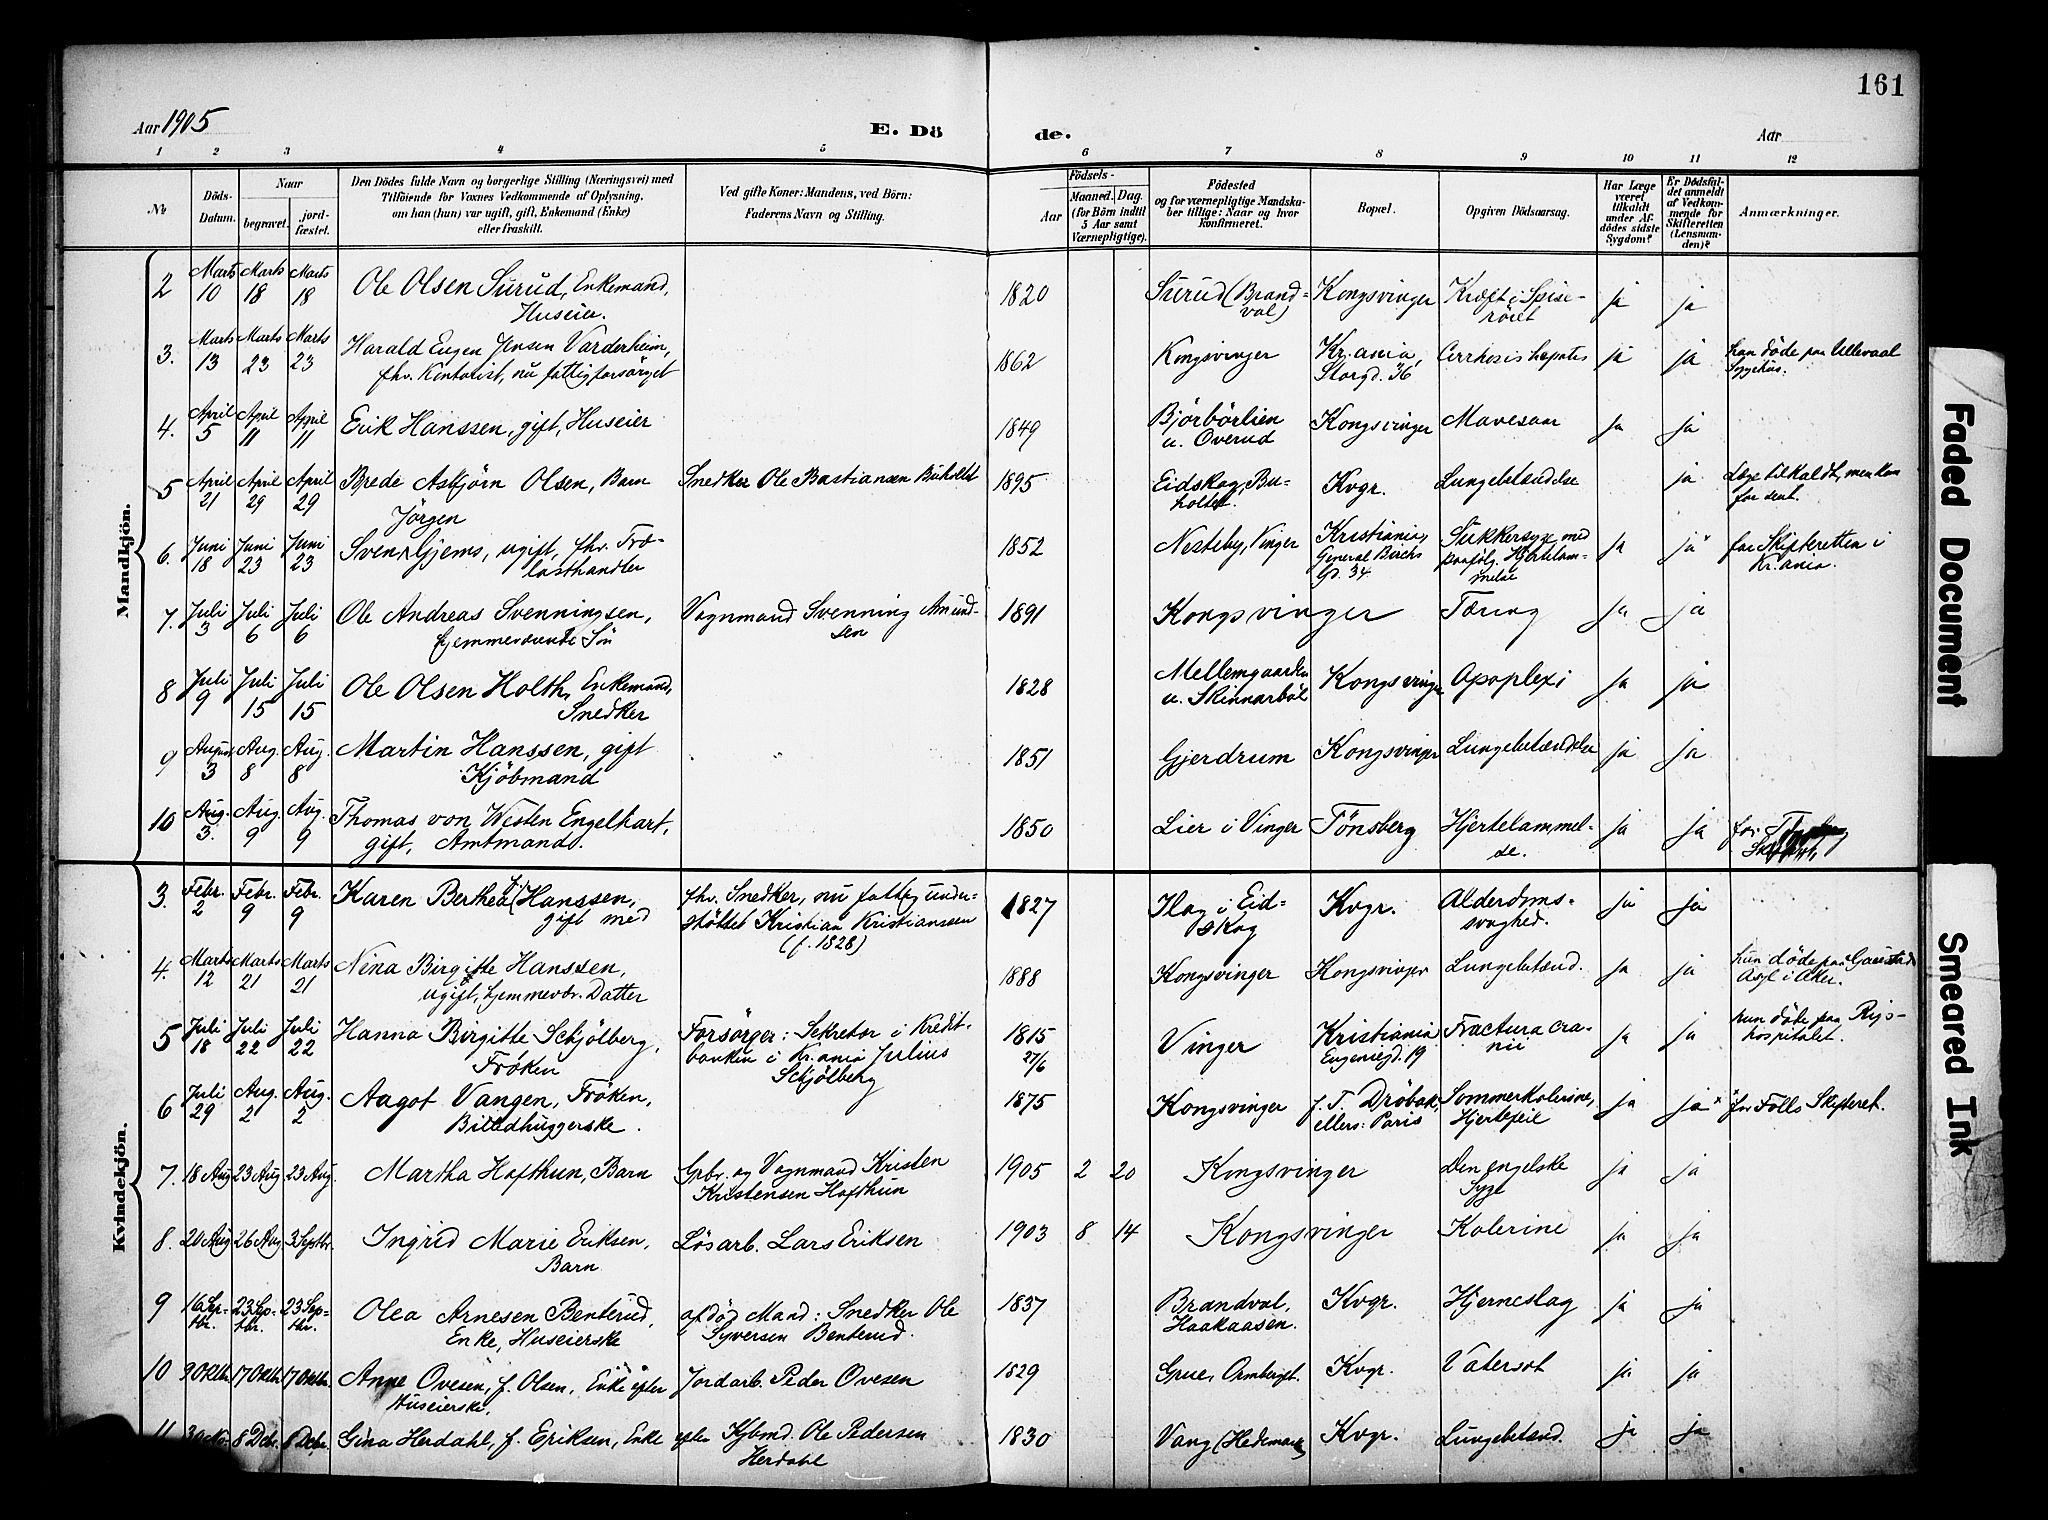 161
Aar 1905
E. Dö
de.
Aar
1 2 3 4 5 6 7 8 9 10 11 12
№
Döds-Datum.
Naar
begravet.
jord-fæstet.
Den Dödes fulde Navn og borgerlige Stilling (Næringsvei) med
Tilföiende for Voxnes Vedkommende af Oplysning,
om han (hun) var ugift, gift, Enkemand (Enke)
eller fraskilt.
Ved gifte Koner: Mandens, ved Börn:
Faderens Navn og Stilling.
Födsels-
Aar
Maaned. Dag.
(for Börn indtil
5 Aar samt
Værnepligtige).
Födested
og for værnepligtige Mandska-
ber tillige: Naar og hvor
konfirmeret.
Bopæl.
Opgiven Dödsaarsag.
Har Læge
været
tilkaldt
under Af-
dödes sidste
Sygdom?
Er Dödsfal-
det anmeldt
af Vedkom-
mende for
Skifteretten
(Lensman-
den)?
Anmærkninger.
Mandkjön.
2 Marts 10 Marts 18 Marts 18 Ole Olsen Surud, Enkemand, 1820 Surud (Brand- Kongsvinger Kræft i Spise- ja ja
Huseier. val) röret
3. Marts 13 Marts 23 Marts 23 Harald Eugen Jensen Varderheim, 1862 Kongsvinger Kr.ania, Cirrhosis hepatis ja ja han döde paa Ullevaal
fhv. Kontorist, nu fattigforsörget Storgd. 36 Sygehus.
4. April 5 April 11 April 11 Erik Hanssen, gift, Huseier 1849 Björbörlien Kongsvinger Mavesaar ja ja
u. Overud
5 April 21 April 29 April 29 Brede Asbjörn Olsen, Barn Snedker Ole Bastiansen Buholdt 1895 Eidskog, Bu- Kvgr. Lungebetændelse ja Læge tilkaldt, men kom
holtet. for sent.
Jörgen
6. Juni 18 Juni 23 Juni 23 Sven Gjems, ugift, fhv. Træ- 1852 Nesteby, Vinger Kristiania, Sukkersyge med ja ja for Skifteretten i
lasthandler General Birchs paafölg. Hjertelam- Kr.ania.
Gd. 34 melse
7. Juli 3 Juli 6 Juli 6 Ole Andreas Svenningsen, Vognmand Svenning Amund- 1891 Kongsvinger Tæring ja ja
hjemmeværende Sön sen
8 Juli 9 Juli 15 Juli 15 Ole Olsen Holth, Enkemand, 1828 Mellemgaarden Kongsvinger Apoplexi ja ja
Snedker u. Skinnarböl
9 August 3 Aug. 8 Aug. 8 Martin Hanssen, gift 1851 Gjerdrum Kongsvinger Lungebetændelse ja ja
Kjöbmand
10 Aug. 3. Aug. 9 Aug. 9 Thomas von Westen Engelhart, 1850 Lier i Vinger Tönsberg Hjertelammel- ja ja for
gift, Amtmand. se.
Kvindekjön.
3. Febr. 2 Febr. 9 Febr. 9 Karen Berthea f. Hanssen, fhv. Snedker, nu fattig under- 1827 Ilag i Eid- Kvgr. Alderdoms- ja ja
gift med stöttet Kristian Kristianssen skog svaghed.
(f. 1828)
4. Marts 12 Marts 21 Marts 21 Nina Birgitte Hanssen, 1888 Kongsvinger Kongsvinger Lungebetænd. ja ja hun döde paa Gaustad
ugift, hjemmevær. Datter Asyl i Aker.
5 Juli 18 Juli 22 Juli 22 Hanna Birgitte Schjölberg, Forsörger: Sekretær i Kredit- 1815 Vinger Kristiania Fractura cra- ja ja hun döde paa Rigs-
Fröken banken i Kr.ania Julius 27/6 Eugeniegd. 19 nii hospitalet.
Schjölberg
6 Juli 29 Aug. 2 Aug. 2 Aagot Vangen, Fröken, 1875 Kongsvinger f. T. Dröbak, Sommerkolerine, ja ja for Follo Skifteret.
Billedhuggerske. ellers: Paris Hjertefeil
7. 18 Aug 23 Aug 23 Aug. Martha Hofthun, Barn Gbr. og Vognmand Kristen 1905 2 20 Kongsvinger Den engelske ja ja
Kristensen Hofthun Syge
8. 20 Aug 26 Aug 3 Septbr. Ingrid Marie Eriksen, Lösarb. Lars Eriksen 1903 8 14 Kongsvinger Kolerine ja ja
Barn
9 16 Sep-tbr. 23 Sep-tbr. 23 Sep-tbr. Olea Arnesen Benterud, afdöd Mand: Snedker Ole 1837 Brandval, Kvgr. Hjerneslag ja ja
Enke, Huseierske Syversen Benterud. Haakaasen.
10 9 Oktbr. 17 Oktbr. 17 Oktbr. Anne Ovesen, f. Olsen, Enke efter Jordarb. Peder Ovesen 1829 Grue, Ormberget. Kvgr. Vatersot ja ja
Huseierske.
11 8 Dcbr. 8 Dcbr. Gina Herdahl, f. Eriksen, Enke efter Kjbmd. Ole Pedersen 1830 Vang (Hedemark) Kvgr. Lungebetænd. ja ja
Herdahl
Faded Document
Smeared Ink